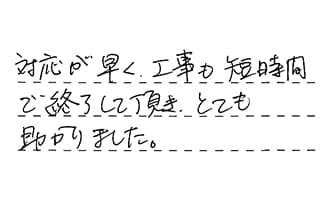 対応が早く、工事も短時間
で終了して頂き、とても
助かりました。